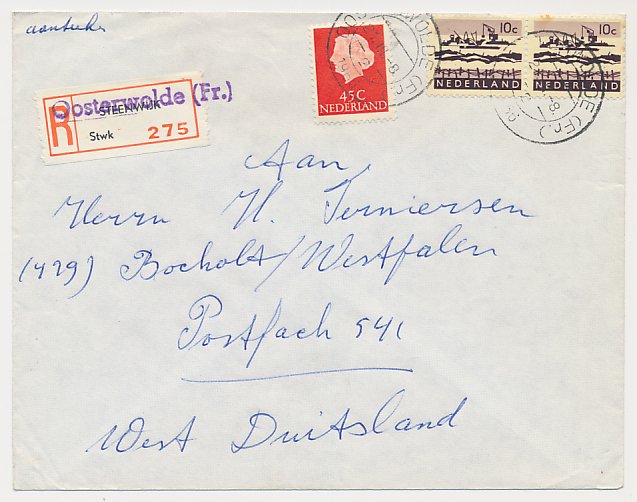 aantekenen
45C
NEDERLAND
10c
NEDERLAND
10c
NEDERLAND
OOSTERWOLDE (Fr.)
R
STEENWIJK
Oosterwolde (Fr.)
Stwk 275
Aan,
Herrn H. Terniersen
(429) Bocholt/Westfalen
Postfach 541
West Duitsland